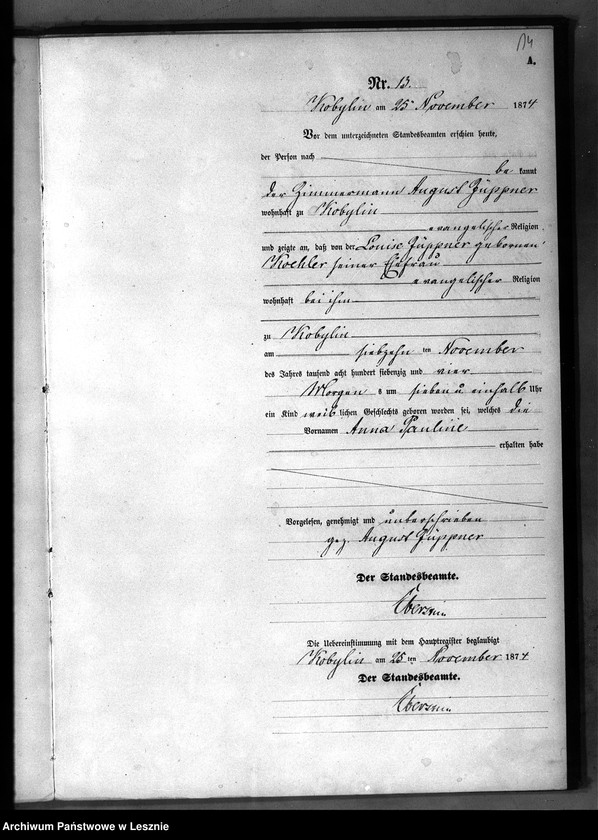 114
A.
Nr. 13.
Kobylin am 25 November 1874
Vor dem unterzeichneten Standesbeamten erschien heute,
der Person nach
be kannt
der Zimmermann August Züppner
wohnhaft zu Kobylin
evangelischer Religion
und zeigte an, daß von der Louise Züppner gebornen
Koehler seiner Ehefrau
evangelischer Religion
wohnhaft bei ihm
zu Kobylin
am siebzehn ten November
des Jahres tausend acht hundert siebenzig und vier
Morgen s um sieben u einhalb Uhr
ein Kind weib lichen Geschlechts geboren worden sei, welches die
Vornamen Anna Pauline
erhalten habe
Vorgelesen, genehmigt und unterschrieben
gez. August Züppner
Der Standesbeamte.
Die Uebereinstimmung mit dem Hauptregister beglaubigt
Kobylin am 25 ten November 1874
Der Standesbeamte.
Archiwum Państwowe w Lesznie